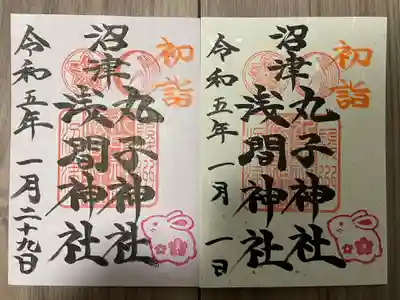 初詣
沼津
丸子神社
浅間神社
令和五年 一月二十九日
初詣
沼津
丸子神社
浅間神社
令和五年 一月 一日